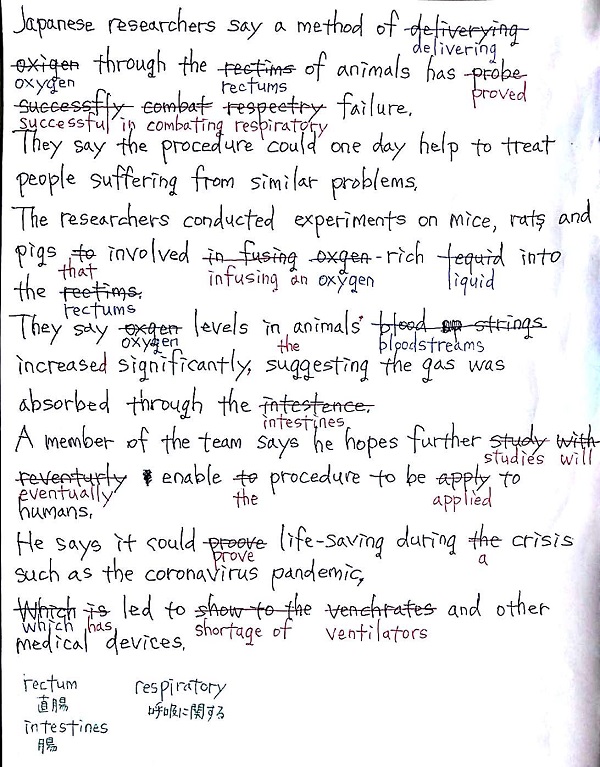 Japanese researchers say a method of deliverying
delivering
oxigen through the rectims of animals has probe
oxygen rectums proved
successfly combat respectry failure.
successful in combating respiratory
They say the procedure could one day help to treat
people suffering from similar problems.
The researchers conducted experiments on mice, rats and
pigs to involved in fusing oxgen-rich lequid into
that infusing an oxygen liquid
the rectims.
rectums
They say oxgen levels in animals' blood strings
oxygen the bloodstreams
increased significantly, suggesting the gas was
absorbed through the intestence.
intestines.
A member of the team says he hopes further study with
studies will
reventurly enable to procedure to be apply to
eventually the applied
humans.
He says it could proove life-saving during the crisis
prove a
such as the coronavirus pandemic,
Which is led to show to the venchrates and other
which has shortage of ventilators
medical devices.
rectum respiratory
直腸 呼吸に関する
intestines
腸